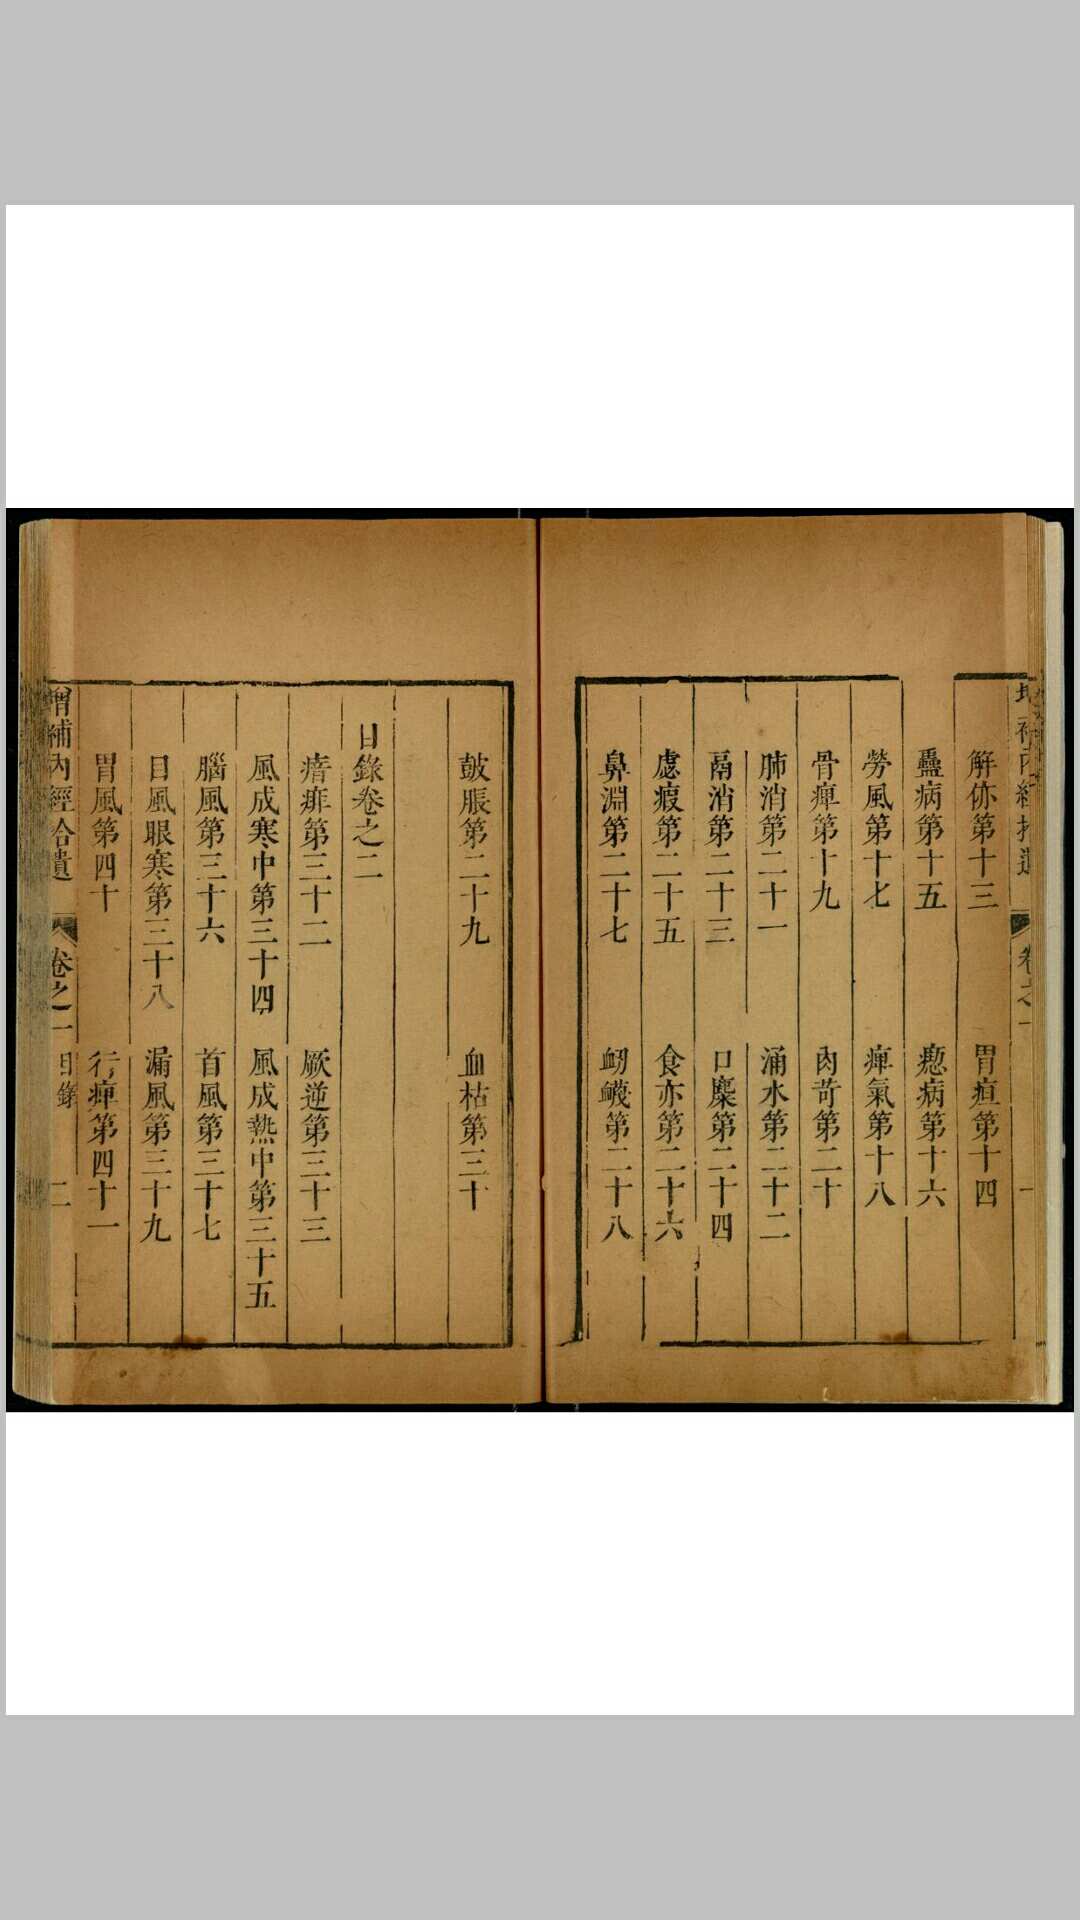 增補內經拾遺 卷之一 一
解㑊第十三 胃疸第十四
蠱病第十五 瘛病第十六
勞風第十七 痺氣第十八
骨痺第十九 肉苛第二十
肺消第二十一 涌水第二十二
鬲消第二十三 口麋第二十四
虙瘕第二十五 食亦第二十六
鼻淵第二十七 衂衊第二十八
皷脹第二十九 血枯第三十
目錄卷之二
瘖痱第三十二 厥逆第三十三
風成寒中第三十四 風成熱中第三十五
腦風第三十六 首風第三十七
目風眼寒第三十八 漏風第三十九
胃風第四十 行痺第四十一
增補內經拾遺 卷之一 目錄 二